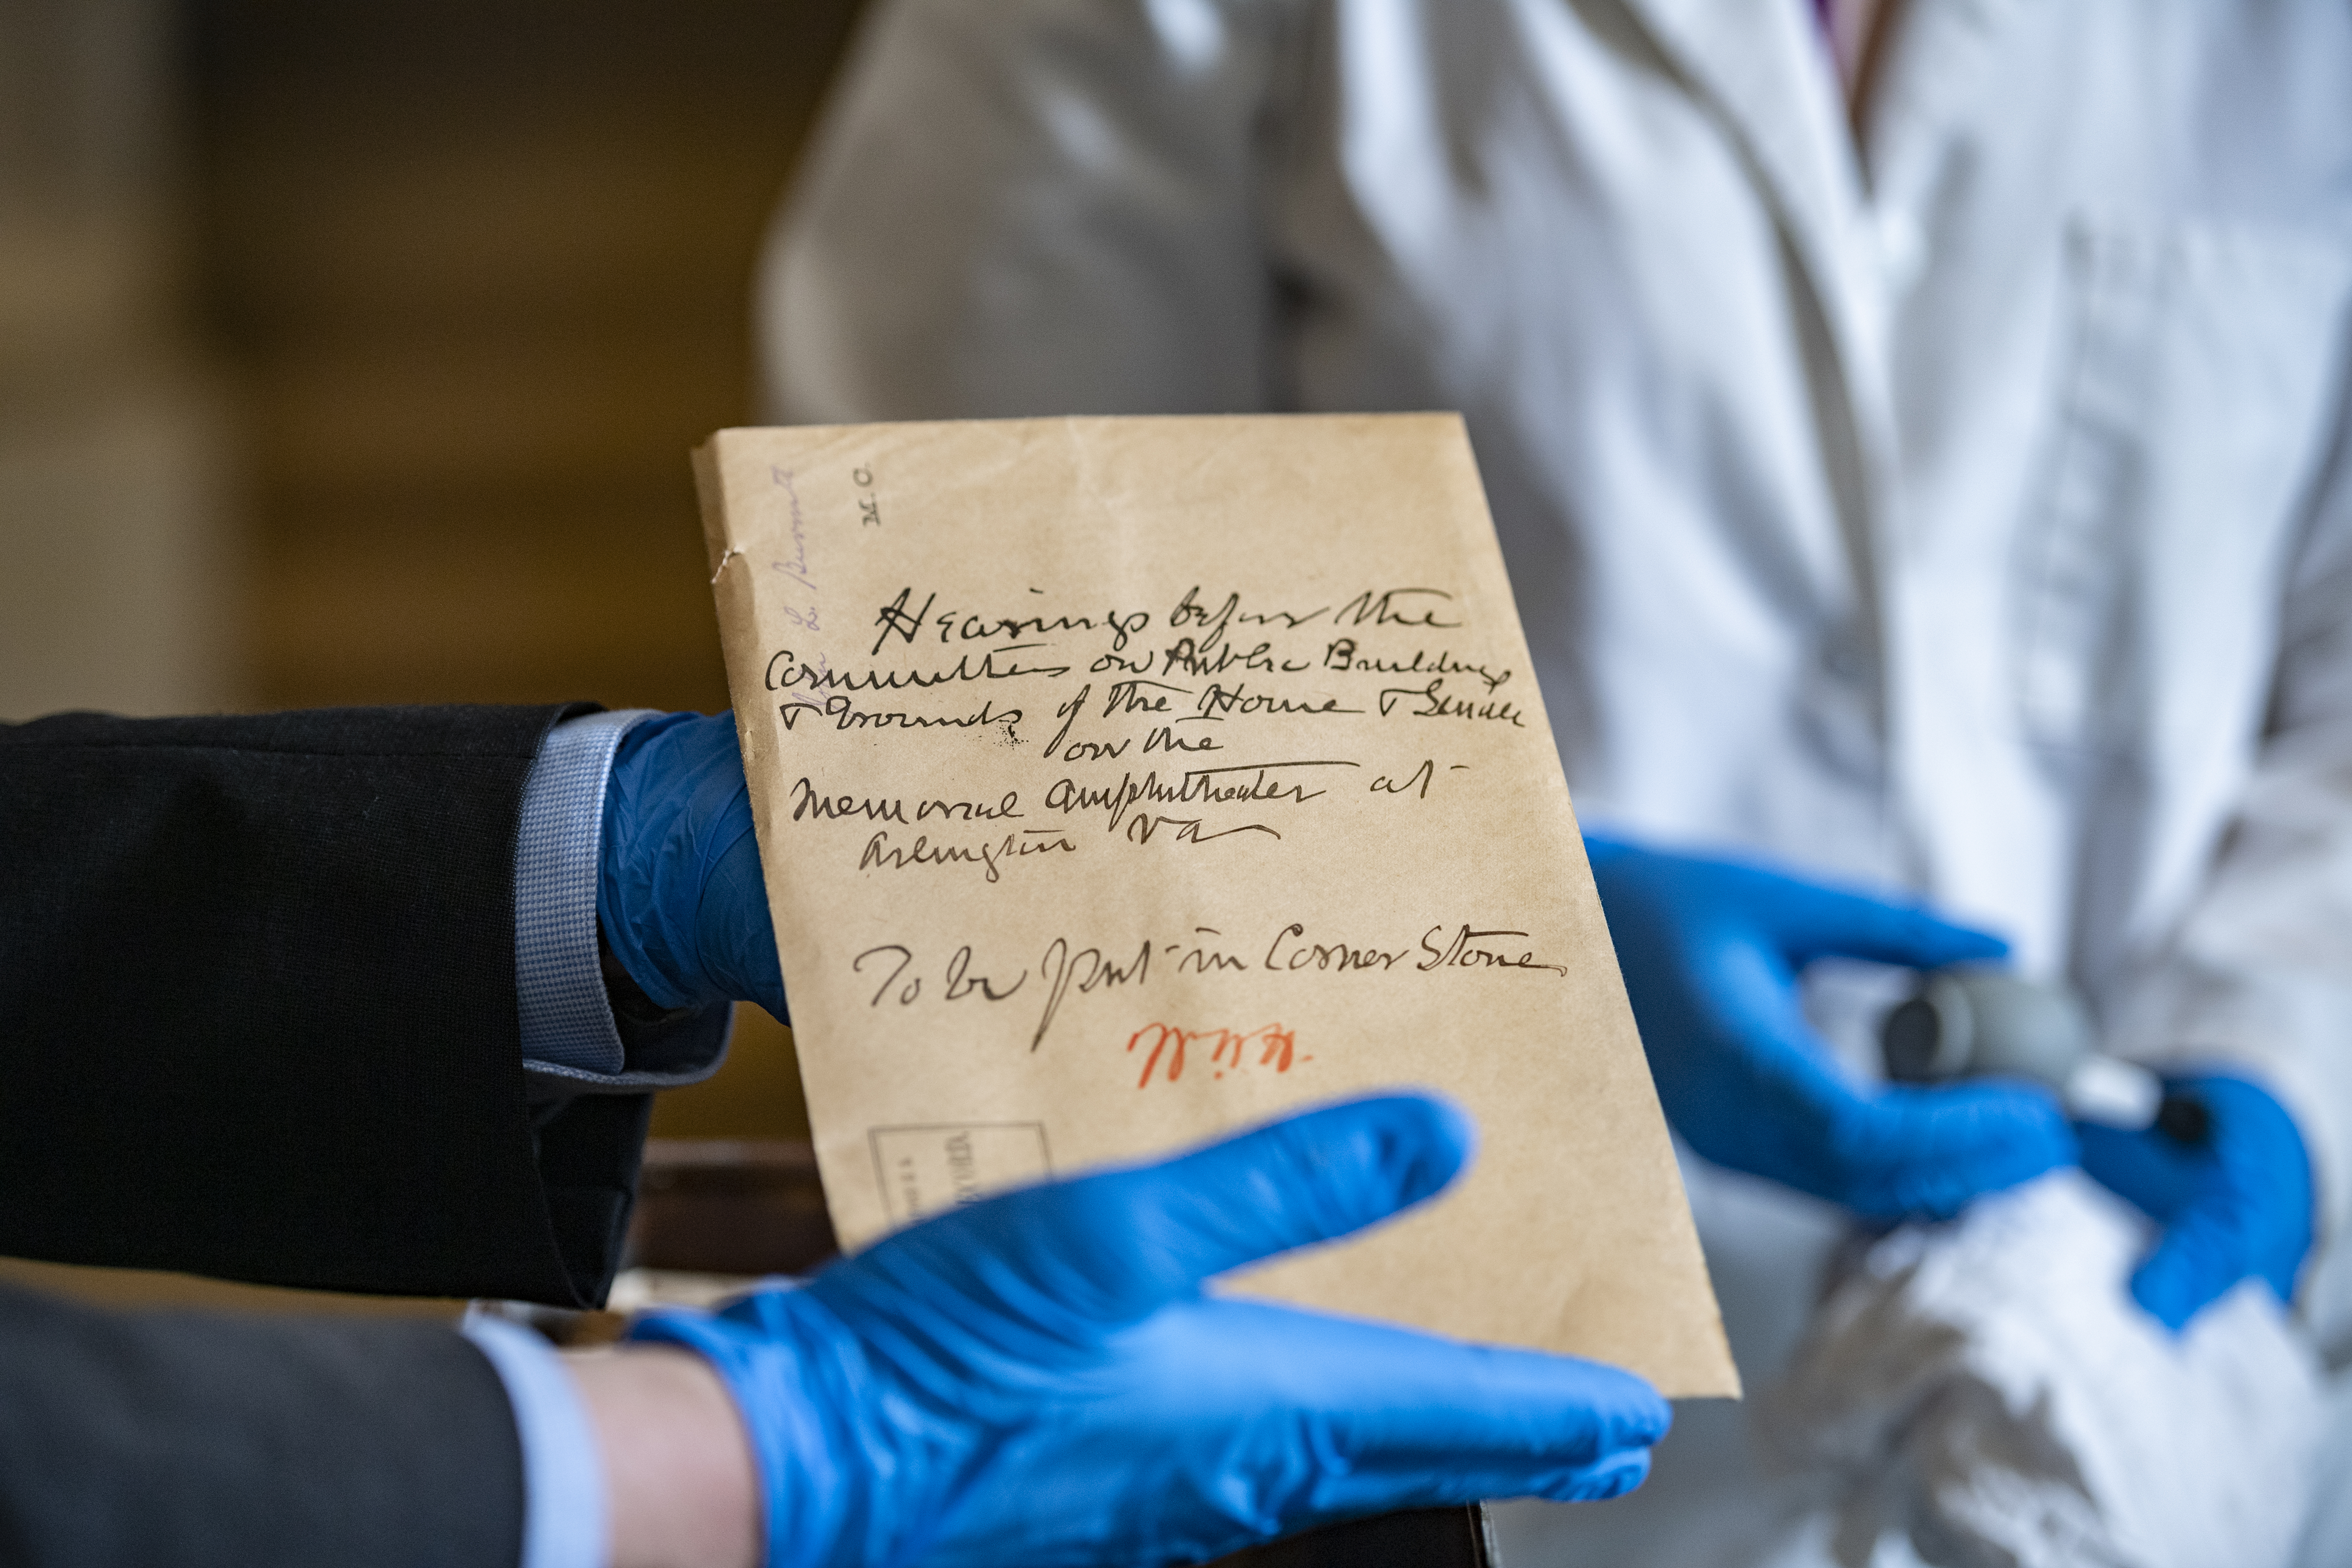 M. C.
Hearings before the
Committees on Public Buildings
& Grounds of the House & Senate
on the
Memorial Amphitheater at
Arlington Va
To be put in Corner Stone